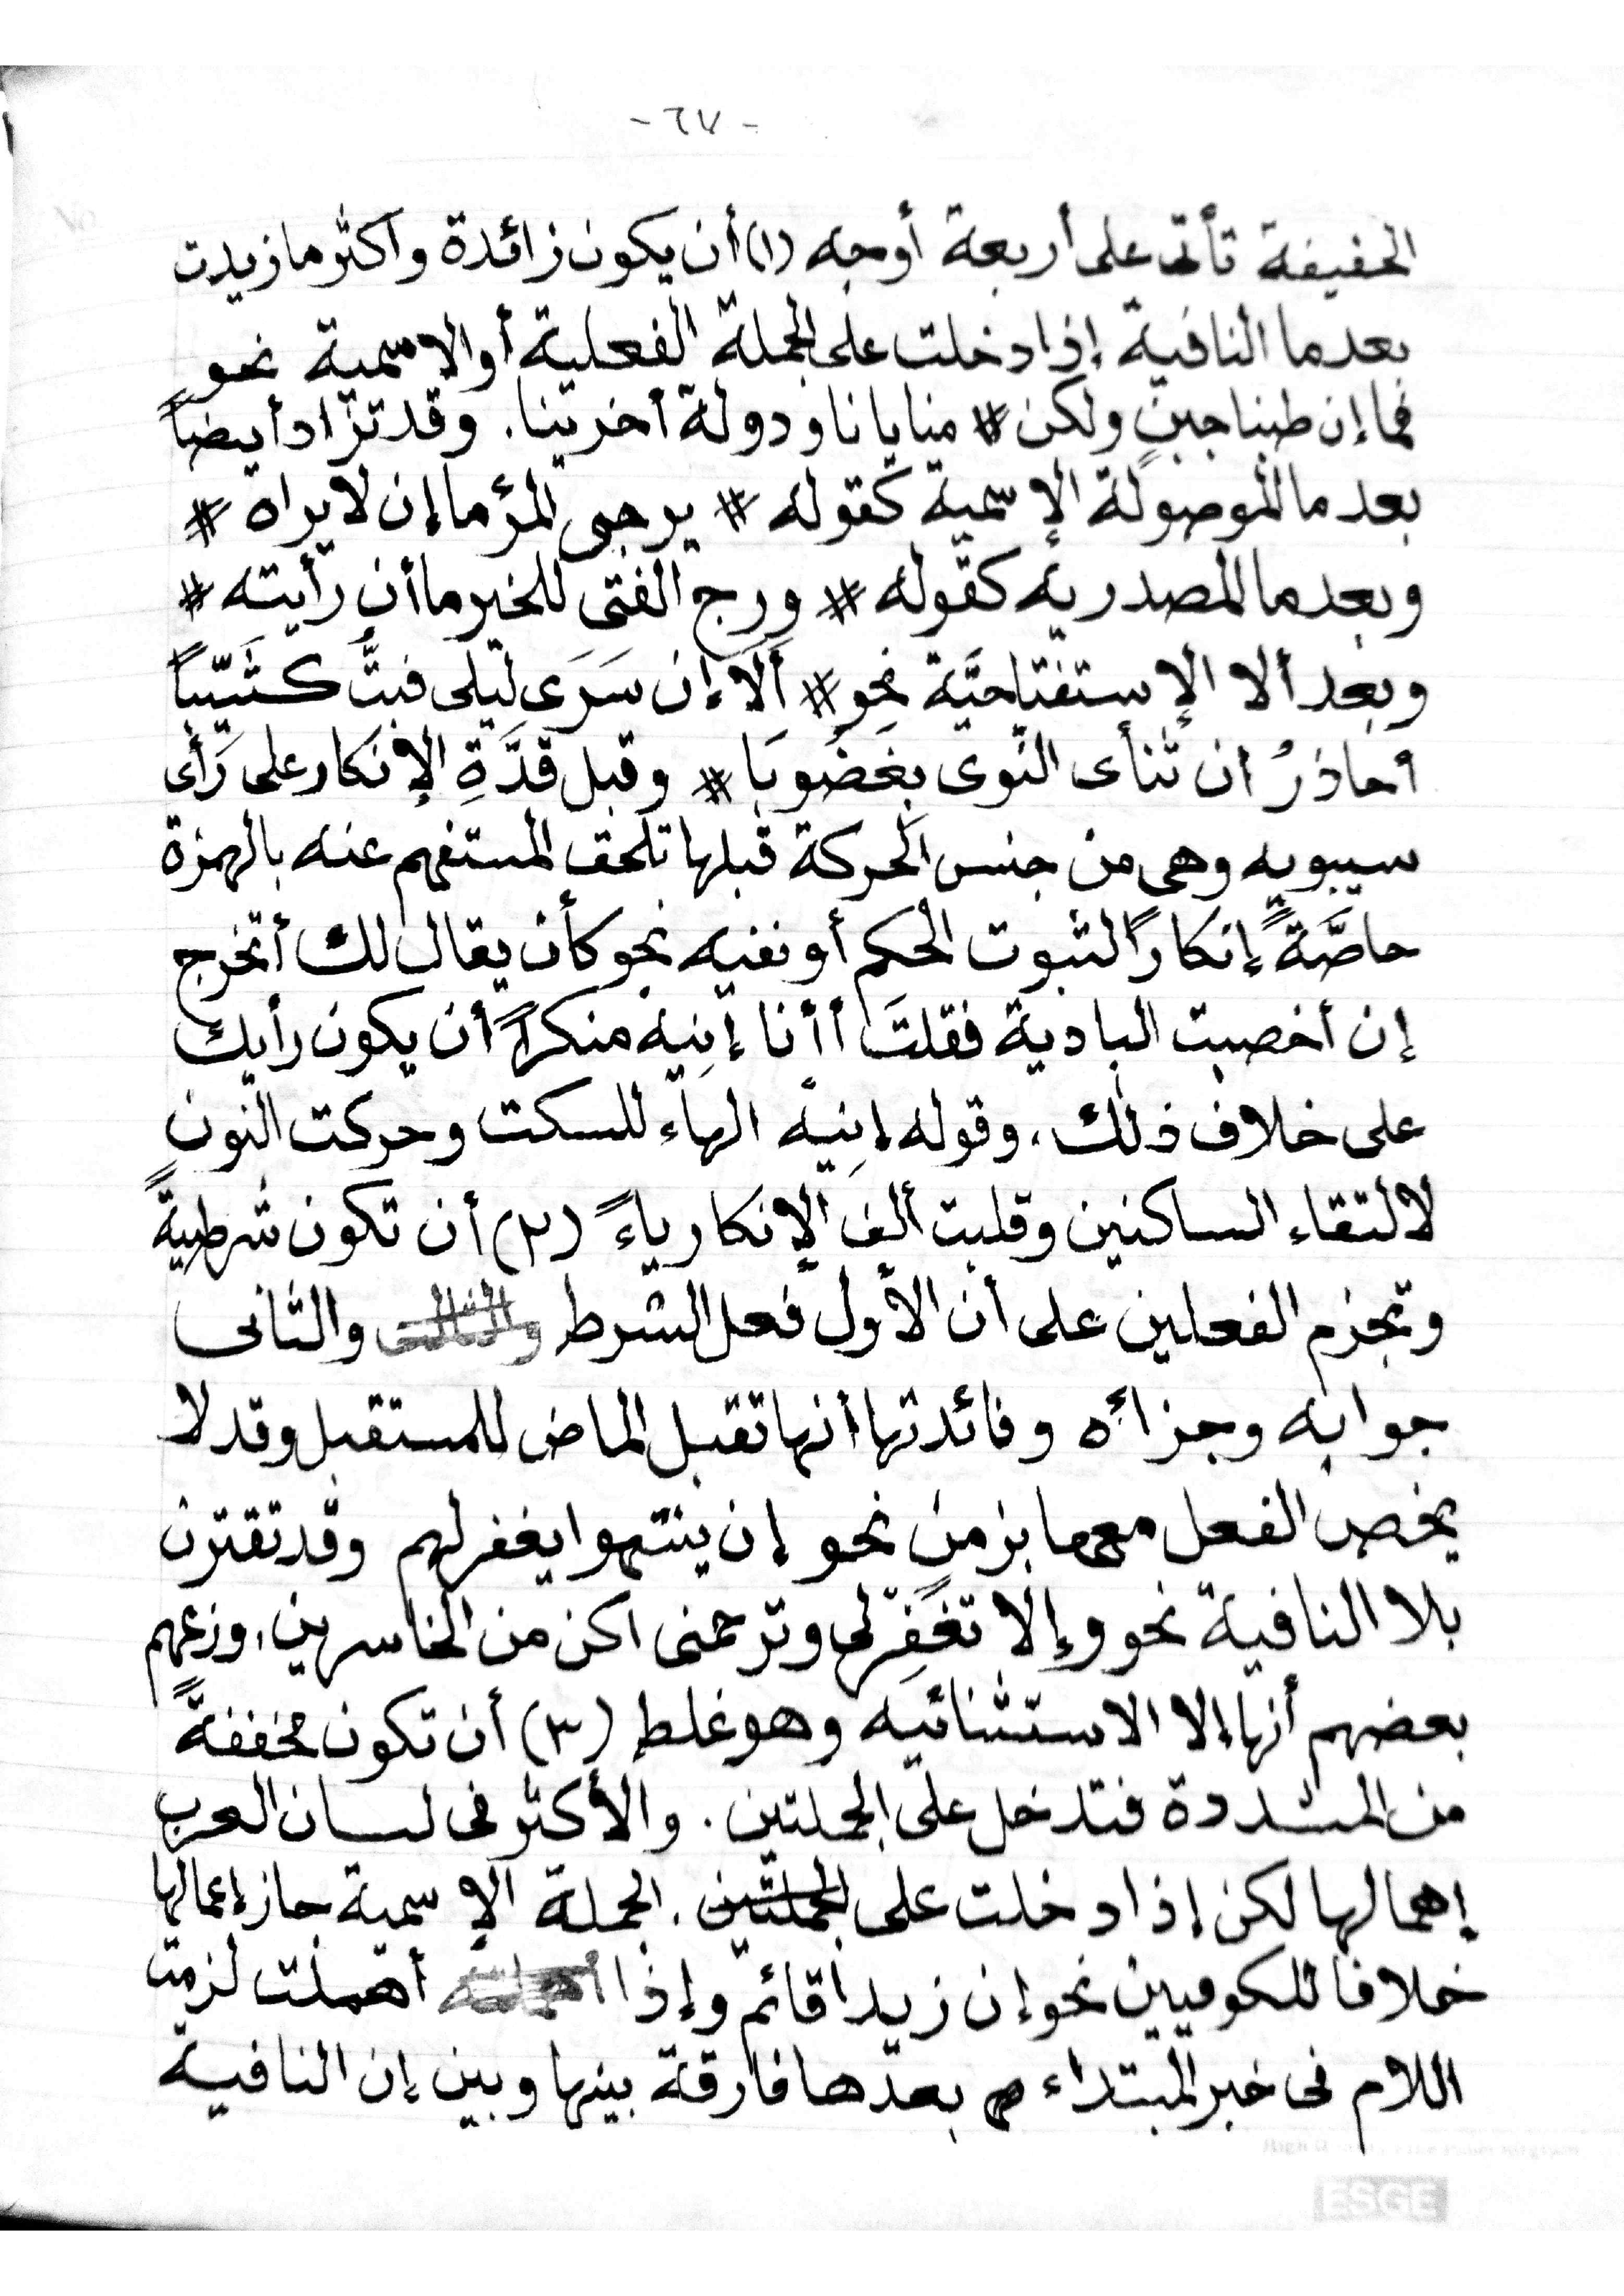 - ٦٧ -
الخفيفة تأتى على أربعة أوجه (١) أن يكون زائدة وأكثر ما زيدت
بعد ما النافية إذا دخلت على الجملة الفعلية أو الاسمية نحو
فما إن طبنا جبنٍ ولكن # منايانا ودولة أخرينا. وقد تزاد أيضاً
بعد ما الموصولة الإسمية كقوله # يرجى المرٔ ما إن لا يراه #
وبعد ما المصدرية كقوله # ورج الفتى للخير ما أن رأيته #
وبعد ألا الإستفتاحيَّة نحو # ألَا إن سَرَى ليلى فبتُّ كئيباً
أحاذرُ أن تنأى النوى بغَضُوبَا # وقبل قدَّةِ الإنكار على رَأى
سيبويه وهى من جنس الحركة قبلها تلحق المستفهم عنه بالهمزة
خاصَّةً إنكاراً لثبوت الحكم أو نفيه نحو كأن يقال لك أتخرج
إن أخصبت البادية فقلتَ أأنا إنِيه منكراً أن يكون رأيك
على خلاف ذلك. وقوله إنِيه الهاء للسكت وحركت النون
لالتقاء الساكنين وقلبت ألف الإنكار ياءً (٢) أن تكون شرطيةً
وتجزم الفعلين على أن الأول فعل الشرط والثانى
جوابه وجزاءه وفائدتها أنها تقبل الماض للمستقبل وقد لا
يخص الفعل معها بزمن نحو إن ينتهوا يغفر لهم وقد تقترن
بلا النافية نحو وإلا تغفِر لى وترحمنى اكن من الخاسرين، وزعهم
بعضهم أنها إلا الاستثنائيه وهو غلط (٣) أن تكون مخففةً
من المشددة فتدخل على الجملتين. والأكثر فى لسان العرب
إهمالها لكن إذا دخلت على الجملتين. الجملة الإسمية جاز إعمالها
خلافا للكوفيين نحو إن زيداً قائم وإذا أهملت لزمت
اللام فى خبر المبتداء بعدها فارقة بينها وبين إن النافية
ESGE